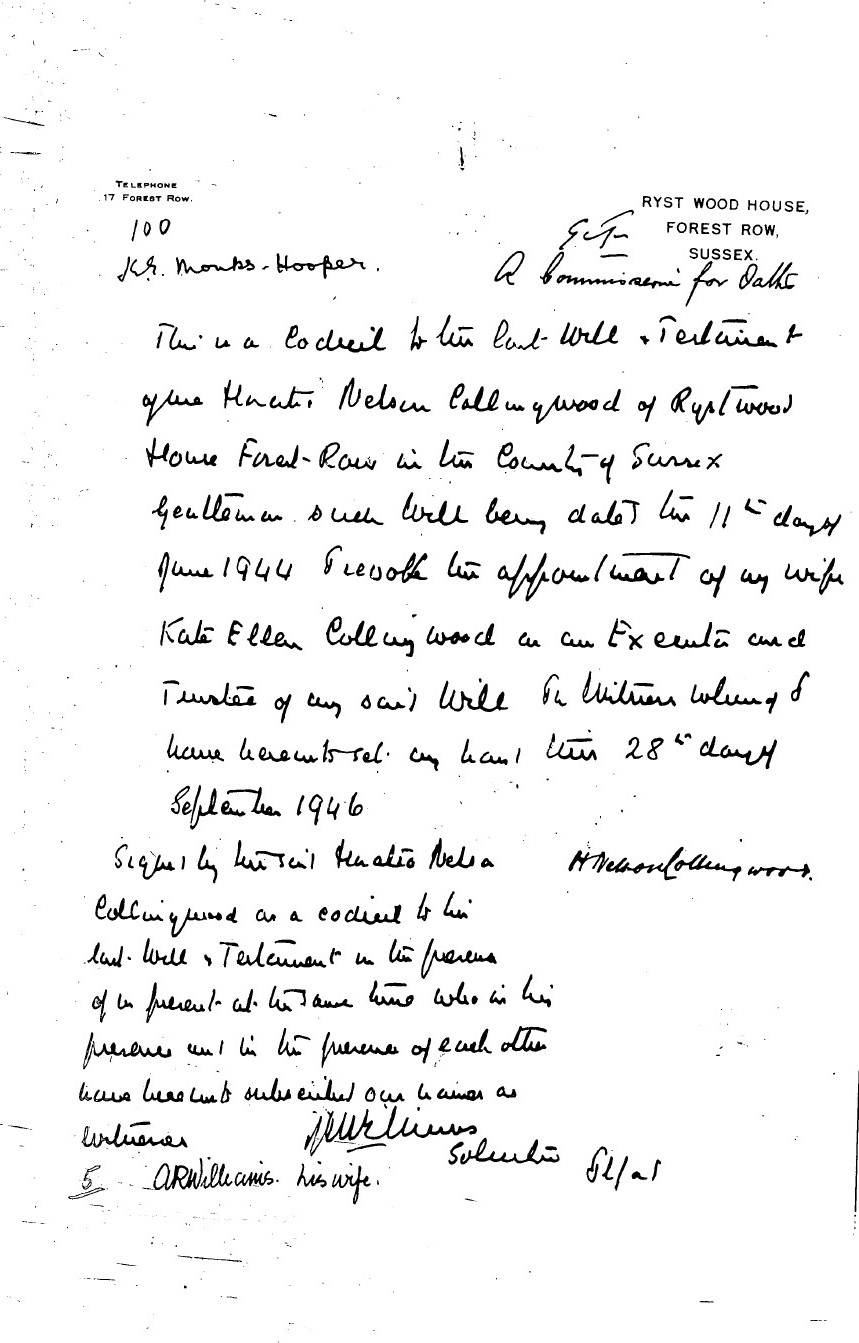 TELEPHONE
17 FOREST ROW.
RYST WOOD HOUSE,
FOREST ROW,
SUSSEX.
100
Monks-Hooper.
A Commissioner for Oaths
This is a Codicil to the last Will & Testament
of me Horatio Nelson Collingwood of Rystwood
House Forest Row in the County of Sussex
Gentleman such Will being dated the 11th day of
June 1944 I revoke the appointment of my wife
Kate Ellen Collingwood as an Executor and
Trustee of my said Will In Witness whereof I
have hereunto set my hand this 28th day of
September 1946
Signed by the said Horatio Nelson
H Nelson Collingwood.
Collingwood as a codicil to his
last Will & Testament in the presence
of us present at the same time who in his
presence and in the presence of each other
have hereunto subscribed our names as
witnesses
Williams
Solicitor
5 A R Williams. his wife.